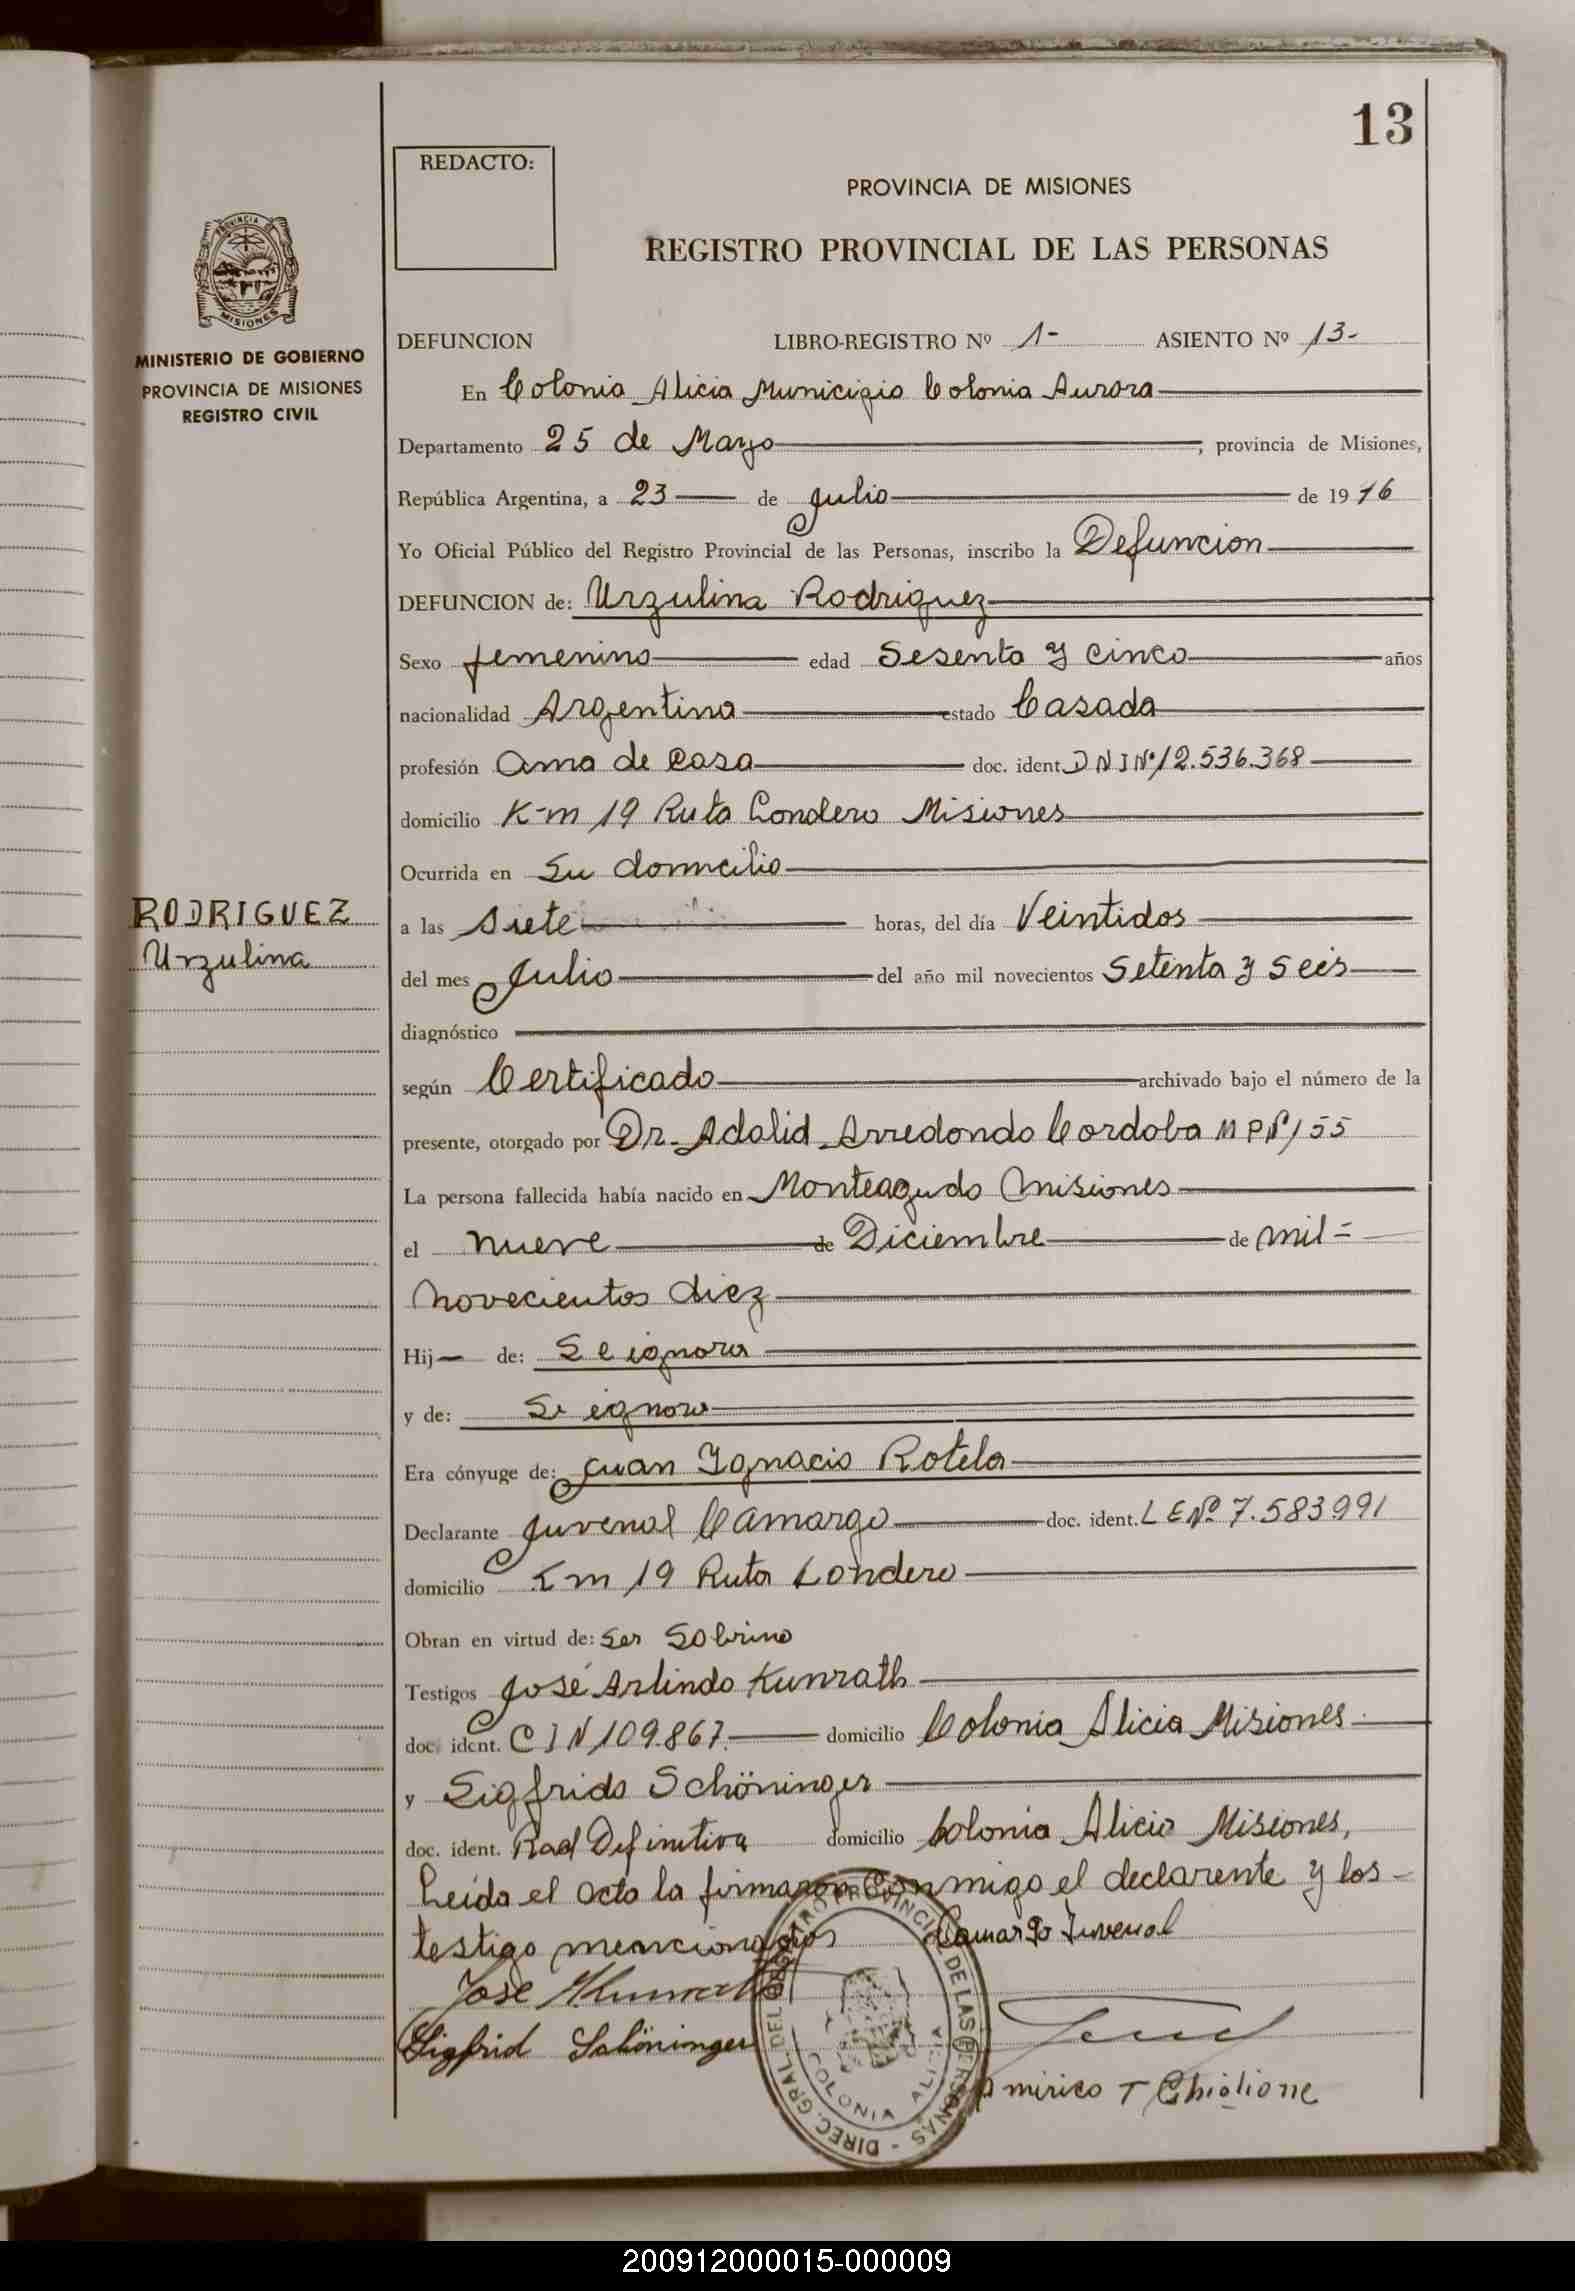 13
REDACTO:
PROVINCIA DE MISIONES
REGISTRO PROVINCIAL DE LAS PERSONAS
PROVINCIA D
MISIONES
MINISTERIO DE GOBIERNO
PROVINCIA DE MISIONES
REGISTRO CIVIL
DEFUNCION LIBRO-REGISTRO Nº 1- ASIENTO Nº 13-
En Colonia Alicia Municipio Colonia Aurora
Departamento 25 de Mayo, provincia de Misiones,
República Argentina, a 23 de Julio de 1976
Yo Oficial Público del Registro Provincial de las Personas, inscribo la Defuncion
DEFUNCION de: Urzulina Rodriguez
Sexo femenino edad Sesenta y cinco años
nacionalidad Argentina estado Casada
profesión Ama de Casa doc. ident. DNI Nº 12.536.368
domicilio Km 19 Ruta Londero Misiones
Ocurrida en Su domicilio
RODRIGUEZ
Urzulina
a las Siete horas, del día Veintidos
del mes Julio del año mil novecientos Setenta y Seis
diagnóstico
según Certificado archivado bajo el número de la
presente, otorgado por Dr. Adalid Arredondo Cordoba M P Nº 155
La persona fallecida había nacido en Monteagudo Misiones
el nueve de Diciembre de mil=
novecientos diez
Hij— de: Se ignora
y de: Se ignora
Era cónyuge de: Juan Ignacio Rotela
Declarante Juvenal Camargo doc. ident. L E Nº 7.583.991
domicilio Km 19 Ruta Londero
Obran en virtud de: Ser Sobrino
Testigos José Arlindo Kunrath
doc. ident. C I N 109.867. domicilio Colonia Alicia Misiones
y Sigfrido Schöninger
doc. ident. Rad Definitiva domicilio Colonia Alicia Misiones,
Leída el acta la firmaron Conmigo el declarente y los-
testigo mencionados Camargo Juvenal
Jose A Kunrath
Sigfrid Schöninger
DIREC. GRAL. DEL REGISTRO PROVINCIAL DE LAS PERSONAS -
COLONIA ALICIA
Amirico T Ghiglione
200912000015-000009